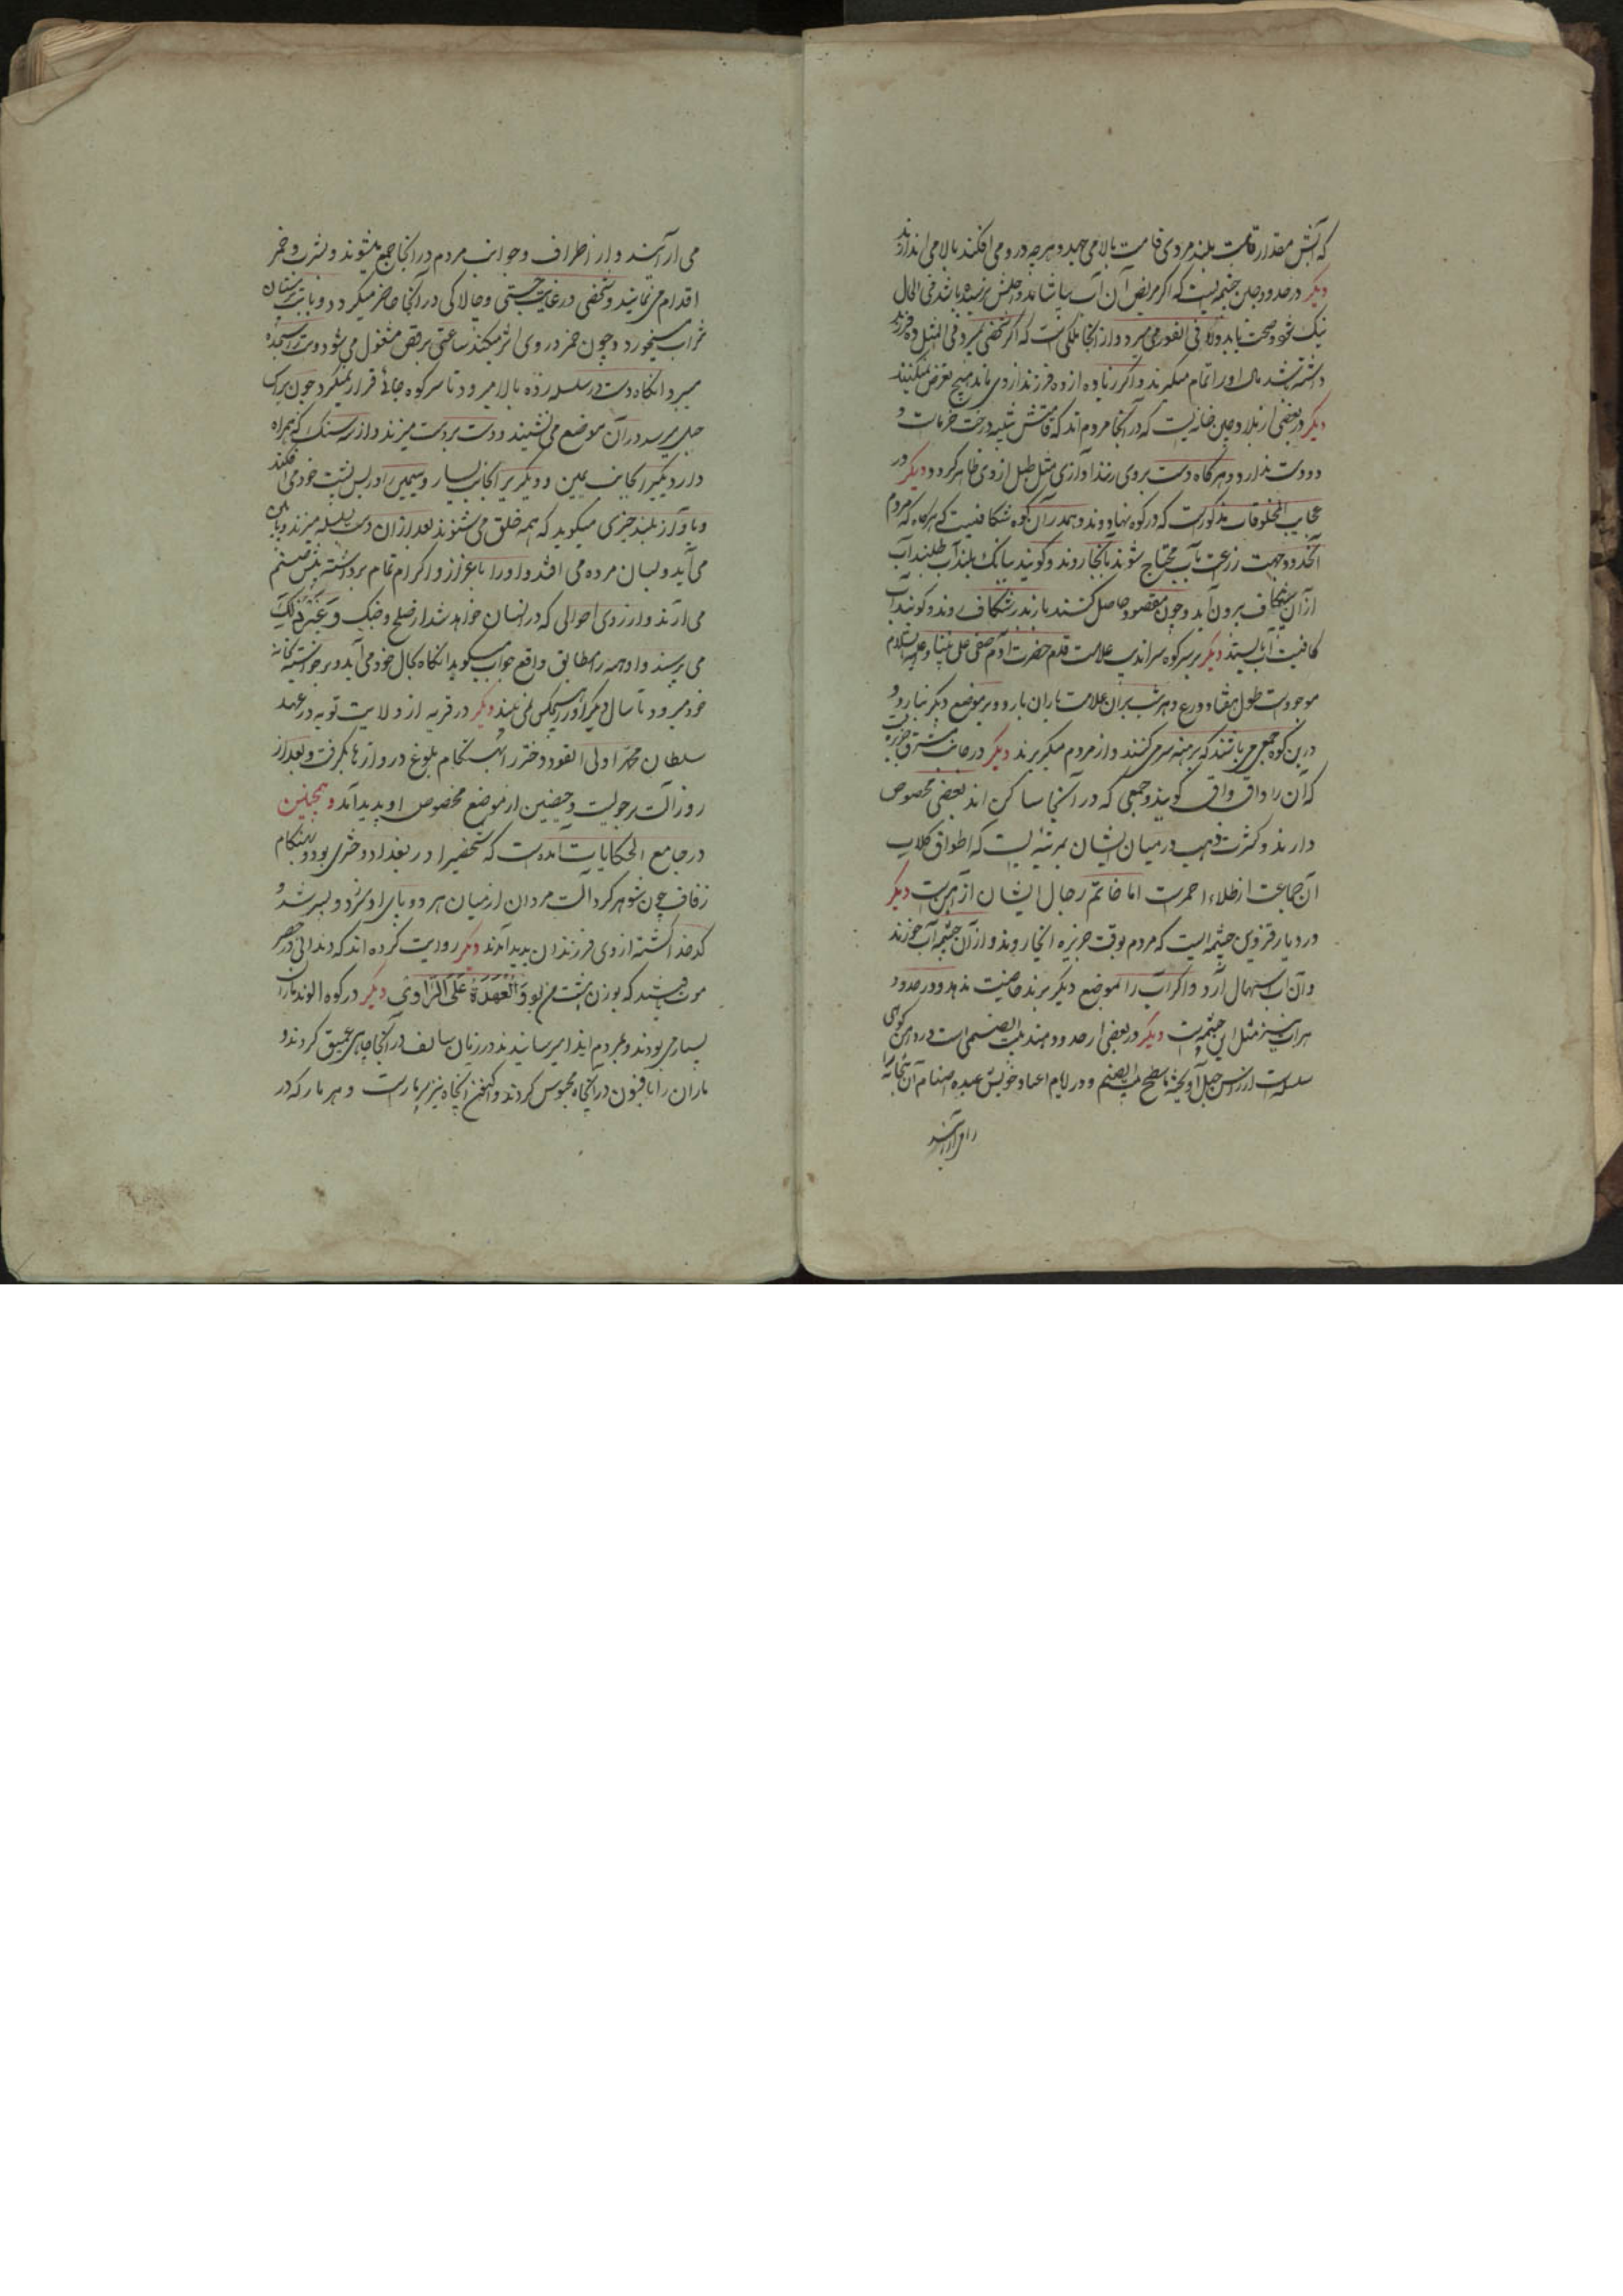 که آبش مقدار قامت بلند مردی قامت بالا می جهد و هر چه در و می افکند بالا می اندازد
دیکر در حدود چین چشمه ایست که اکر مریض آن آب بیاشامد و اجلش نرسیده باشد فی الحال
نیک شود و صحت یابد والا فی الفور می میرد و از آنجا ملکی است که اکر شخصی بمیرد فی المثل ده فرزند
داشته باشد مال او را تمام میکیرند و اکر زیاده از ده فرزند از وی ماند هیچ تعرض نمیکنند
دیکر در بعضی از بلاد چین خانه ایست که در آنجا مردم اند که شبیه درخت خرماست و
دو دست ندارد و هرکاه دست بروی زنند آوازی مثل طبل از وی ظاهر کردد دیکر در
عجایب المخلوقات مذکور است که در کوه نهاوند و همدان کوه شکافیست که هرکاه که مردم
آنحدود جهت زرعت بآب محتاج شوند بآنجا روند و کویند ببانک بلند آب طلبند آب
از آن شکاف برون آید و چون مقصود حاصل کنند باز نزد شکاف روند و کویند آب
کافیست آب بایستد دیکر بر سر کوه سراندیب علامت قدم حضرت آدم صفی علی نبینا و علیه السلام
موجودست طول هفتاد ذرع و هر شب بران علامت باران بارد و بر موضع دیکر نبارد و
درین کوه جمعی می باشند که برهنه سر می کنند و از مردم میکریزند دیکر در جانب مشرق جزیره ایست
که آن را واق واق کویند و جمعی که در آنجا ساکن اند بعضی مخصوص
دارند و کثرت ذهب در میان ایشان بمرتبه ایست که اطواق کلاب
آن جماعت از طلاء احمرست اما خاتم رجال ایشان از آهن است دیکر
در دیار قزوین چشمه ایست که مردم بوقت خربزه آنجا روند و از آن چشمه آب خورند
و آن آب اسهال آرد و اکر آب را بموضع دیکر برند خاصیت ندهد و در حدود
هرات نیز مثل این چشمه است دیکر در بعضی از حدود هند بیت الصنمی است در دامن کوهی
سلسله است از رأس جبل آویخته تا سطح بیت الصنم و در ایام اعیاد خویش عبده اصنام آن بتخانه را
می آرایند و از اطراف و جوانب مردم در آنجا جمع میشوند و بشرب و خمر
اقدام می نمایند و شخصی در غایت چستی و چالاکی در آنجا حاضر میکردد و با بت پرستان
شراب میخورد و چون خمر در وی اثر میکند ساعتی برقص مشغول می شود و بت را سجده
میبرد آنکاه دست در سلسله زده بالا میرود تا سر کوه جائی قرار نمیکیرد چون بر سر
جبل میرسد در آن موضع می نشیند و دست بر دست میزند و از سه سنک که همراه
دارد یکی را بجانب یمین و دیکری را بجانب یسار و سیمین را در پس پشت خود می افکند
و بآواز بلند چیزی میکوید که همه خلق می شنوند بعد از آن دست بسلسله میزند و پایین
می آید و بسان مرده می افتد و او را باعزاز و اکرام تمام برداشته پیش صنم
می آرند و از وی احوالی که در انسان خواهد شد از صلح و جنک و غیر ذلک
می پرسند و او همه را مطابق واقع جواب میکوید آنکاه بحال خود می آید و برخواسته بخانه
خود میرود تا سال دیکر او را هیچکس نمی بیند دیکر در قریه از ولایت تویه در عهد
سلطان محمد اولی القود دختر را بهنکام بلوغ درواز هابکرفت و بعد از
روز آلت رجولیت و خصیتین از موضع مخصوص او پدید آمد و همچنین
در جامع الحکایات آمده است که شخصیرا در بغداد دختری بود و بهنکام
زفاف چون شوهر کرد آلت مردان از میان هر دو پای او بزد و پسر شد و
کدخدا کشته از وی فرزندان پدید آمدند دیکر روایت کرده اند که دندانی در مصر
یافتند که بوزن هشت من بود وَالْعُهْدَةُ عَلَی الرَّاوِی دیکر در کوه الوند ماران
بسیار می بودند و بمردم ایذا میرسانیدند در زمان سالف در آنجا چاهی عمیق کردند و
ماران را بافسون در آنچاه محبوس کردند و اکنون آنچاه نیز پر مارست و هر مار که در